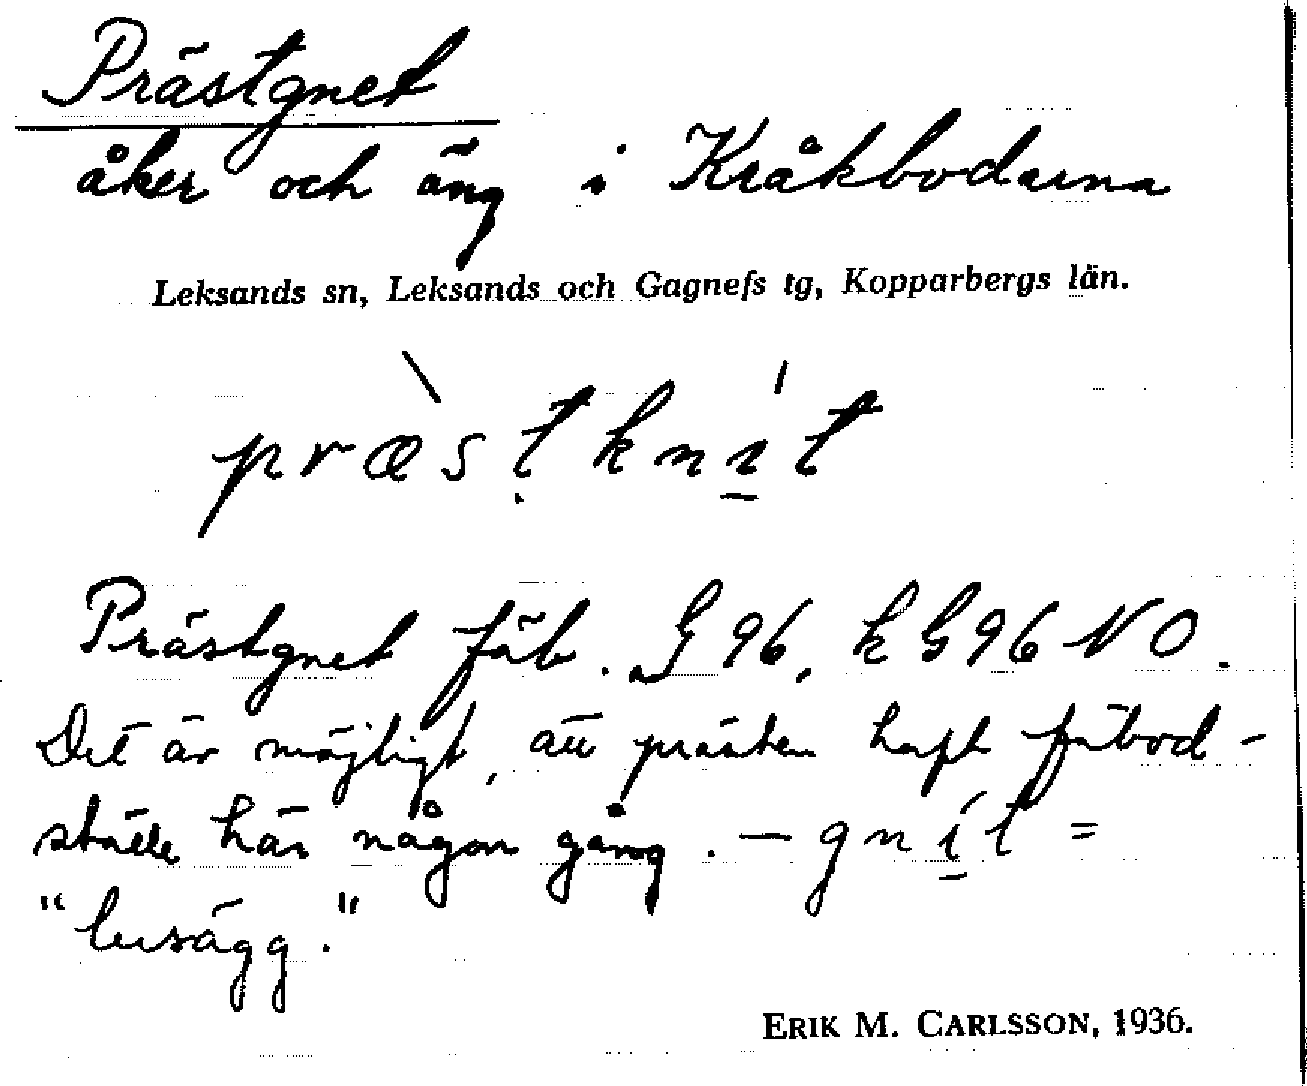 Prästgnet
åker och äng i Kråkbodarna
Leksands sn, Leksands och Gagnefs tg, Kopparbergs län.
præ̀sṭkní̱t
Prästgnet fäb. G 96, k G 96 NO.
Det är möjligt, att prästen haft fäbod-
ställe här någon gång. — gní̱t =
"lusägg."
ERIK M. CARLSSON, 1936.